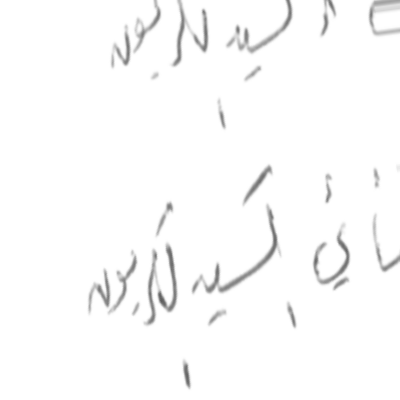 أكسيد الكربون
ـائي أكسيد الكربون